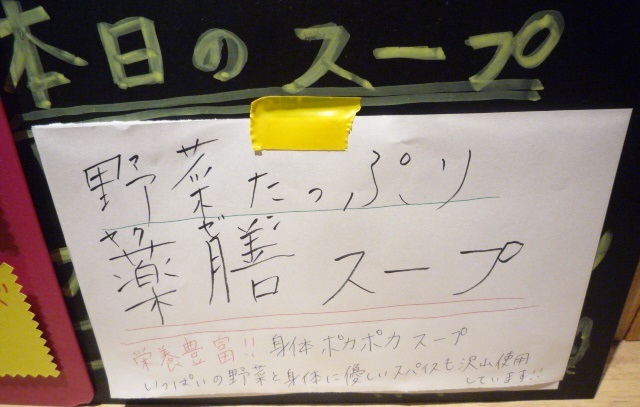 本日のスープ
野菜たっぷり
ヤク ゼン
薬膳スープ
栄養豊富!! 身体ポカポカスープ
いっぱいの野菜と身体に優しいスパイスも沢山使用
しています!!